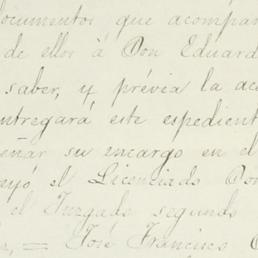 documentos que acompañ
de ellos á Don Eduard
saber, y prévia la ac
ntregará este espedient
eñar su encargo en el
eyó, el Licenciado Don
el Juzgado segundo
= José Francisco